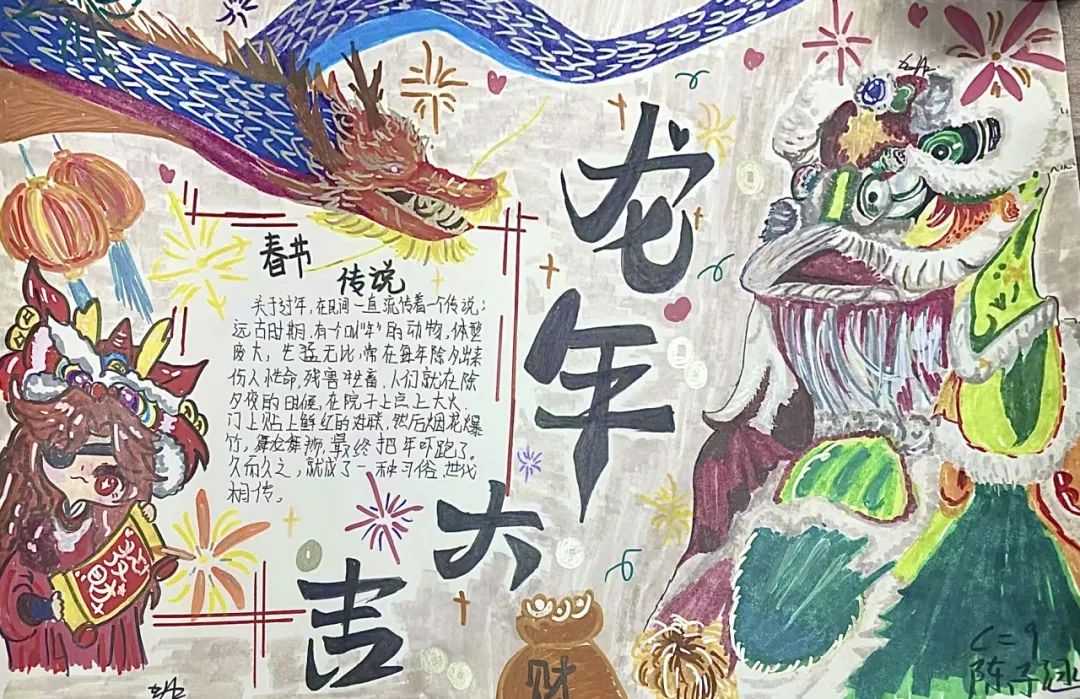 龙年
大
吉
春节
传说
关于过年,在民间一直流传着一个传说:
远古时期,有个叫"年"的动物,体型
庞大,生猛无比,常在每年除夕出来
伤人性命,残害牲畜,人们就在除
夕夜的时候,在院子上点上大火,
门上贴上鲜红的对联,然后烟花爆
竹,舞龙舞狮,最终把年吓跑了。
久而久之,就成了一种习俗,世代
相传。
财
陈子涵